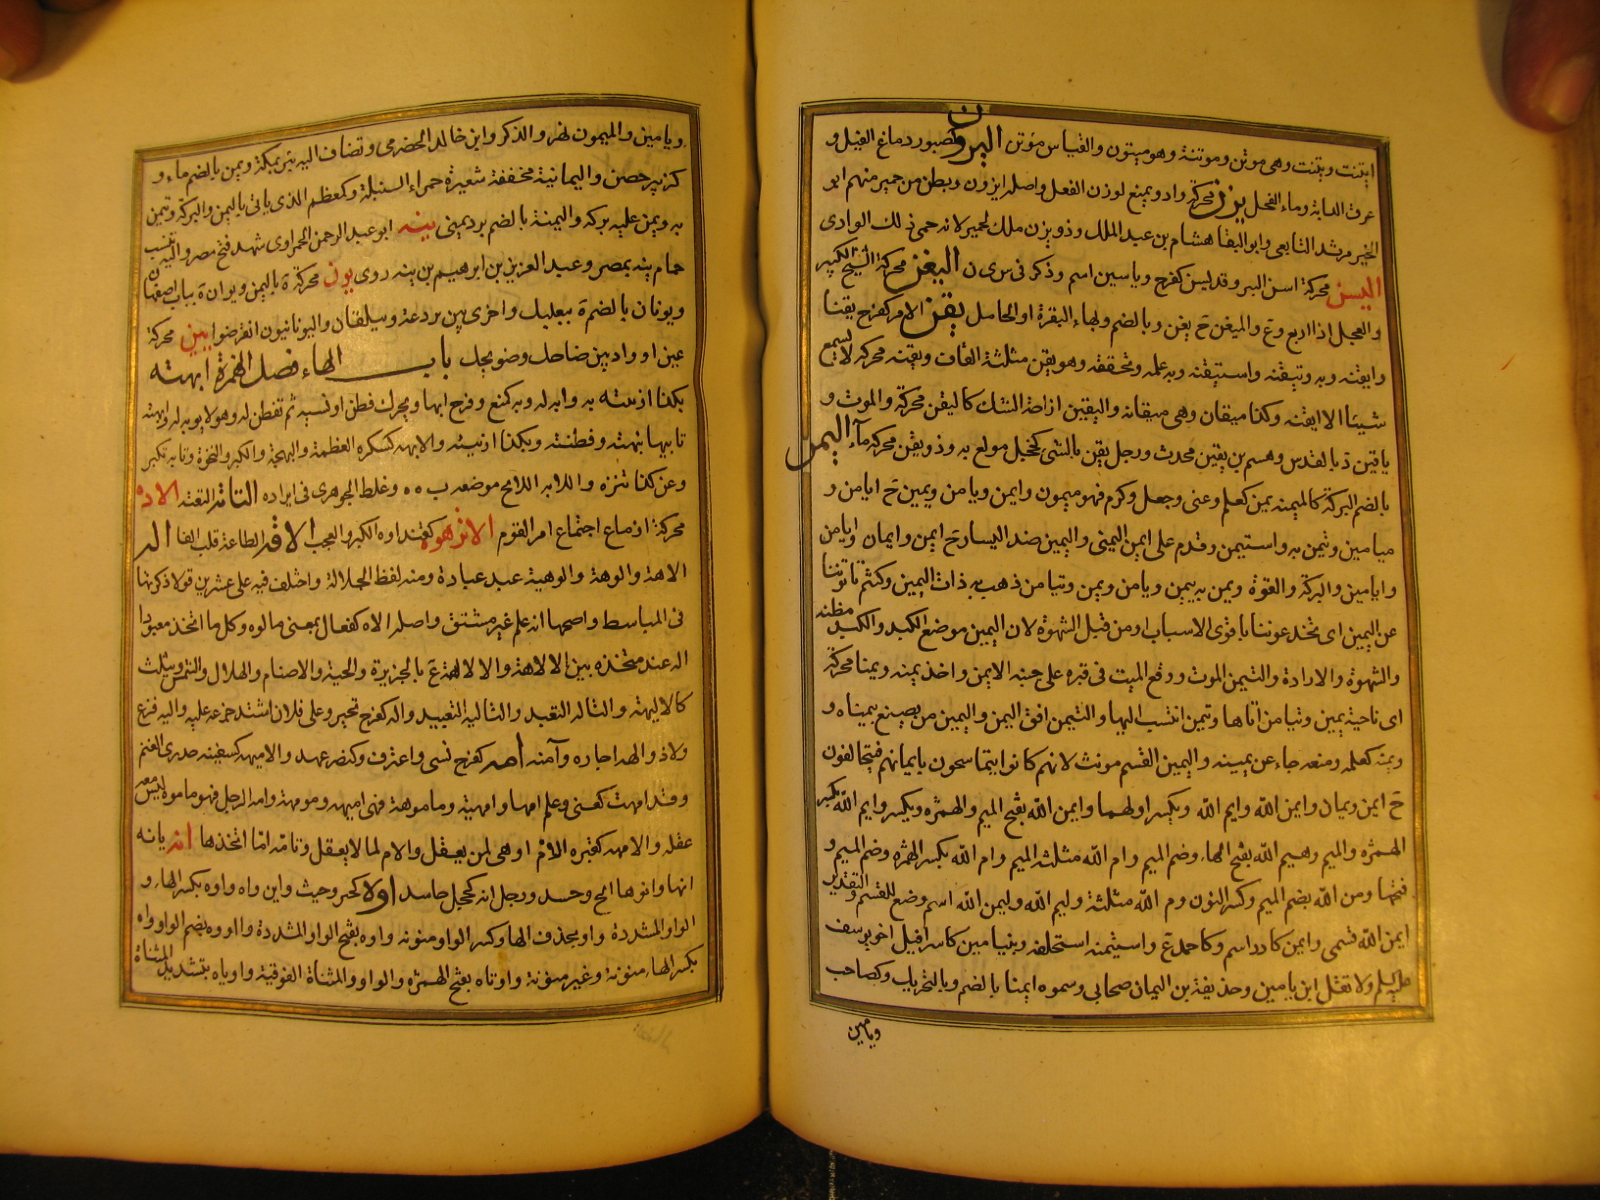 ايتنت ويتنت وهى موتن وموتنة وهو ميتون والقياس موتن اليرون كصبور دماغ الفيل و
عرق الدابة وماء الفحل يزن محركة واد ويمنع لوزن الفعل واصله ايزون وبطن من حمير منهم ابو
الخير مرثد التابعى وابو البقا هشام بن عبد الملك وذو يزن ملك لحمير لانه حمى ذلك الوادى
اليسن محركة اسن البير وقد يسن كفرح وياسين اسم وذكر فى س ى ن اليفن محركة الشيخ الكبير
والعجل اذا اربع وع والميفن ح يفن وبالضم ولهاء البقرة او الحامل يقن الامر كفرح يقنا
وايقنه وبه وتيقنه واستيقنه وبه علمه وتحققه وهو يقن مثلثة القاف ويقنه محركة لا يسمع
شيئا الا ايقنه وكذا ميقان وهى ميقانة واليقين ازاحة الشك كاليقن محركة والموت و
يافين ة بالقدس وهسم بن يقين محدث ورجل يقن بالشى كخجل مولع به وذو يقن محركة ماء اليمن
بالضم البركة كالميمنه يمن كعلم وعنى وجعل وكرم فهو ميمون وايمن ويامن ويمين ح ايامن و
ميامين وتيمن به واستيمن وقدم على ايمن اليمنى واليمين ضد اليسار ح ايمن وايمان وايامن
وايامين والبركة والقوة ويمن به يمين ويامن ويمن وتيامن ذهب به ذات اليمين وكنتم تاتوننا
عن اليمين اى تخدعوننا باقوى الاسباب او من قبل الشهوة لان اليمين موضع الكبد والكبد مظنة
والشهوة والارادة والتيمن الموت ووقع الميت فى قبره على جنبه الايمن واخذ يمنه ويمنا محركة
اى ناحية يمين وتيامن اتاها وتيمن انتسب اليها والتيمن افق اليمن واليمين من يصنع بيمناه و
ويمنه كعلمه ومنعه جاء عن يمينه واليمين القسم مونث لانهم كانوا يتماسحون بايمانهم فيتحالفون
ح ايمن ويمان وايمن الله وايم الله ويكسر اولهما وايمن الله بفتح الميم والهمزه ويكسر وايم الله بكسر
الهمزه والميم وهيم الله بفتح الهاء وضم الميم وام الله مثلثه الميم وام الله بكسر الهمزه وضم الميم و
فتحها ومن الله بضم الميم وكسر النون وم الله مثلثة وليم الله وليمن الله اسم وضع للقسم والتقدير
ايمن الله قسمى وايمن كاذرد اسم وكاحمد ع واستيمنه استحلفه وبنيامين كاسرافيل اخو يوسف
عليه السلم ولا تقل ابن يامين وحذيفة بن اليمان صحابى وسموه ايمنا بالضم وبالتحريك وكصاحب
ويامين
ويامين والميمون نهر والذكر وابن خالد الحضرمى وتضاف اليه بئر بمكة ويمن بالضم ماء و
كزبير حصن واليمانية مخففة شعيرة حمراء السنبلة وكمعظم الذى ياتى باليمن والبركة وتيمن
به ويمن عليه بركه واليمنة بالضم برد يمنى ينه ابو عبد الرحمن الحمراوى شهد فتح مصر واليه ينسب
حمام ينه بمصر وعبد العزيز بن ابرهيم بن ينه روى يون محركة ة باليمن ويوان ة بباب اصفهان
ويونان بالضم ة ببعلبك واخرى بين بردعة وبيلقان واليونانيون انقرضوا يين محركة
عين او واد بين ضاحك وضويحك باب الهاء فصل الهمزة ابهته
بكذا ازننته به وابه له وبه كمنع وفرح ابها ويحرك فطن او نسيه ثم تفطن له وهو لا يوبه له وابهته
تابيها نبهته وفطنته وبكذا ازننته والابهة كسكره العظمة والبهجة والكبر والنخوة وتابه تكبر
وعن كذا تنزه والابه اللامح موضعه ب ه ه وغلط الجوهرى فى ايراده التاته التعته الاده
محركة اذماع اجتماع امر القوم الانزهوة كقند اوة الكبر والعجب الاقه الطاعة قلب القا اله
الاهة والوهة والوهية عبد عبادة ومنه لفظ الجلالة واختلف فيه على عشرين قولا ذكرتها
فى المباسط واصحها انه علم غير مشتق واصله الاه كفعال بمعنى مالوه وكل ما اتخذ معبودا
اله عند متخذه بين الالاهة والالاهة ع بالجزيرة والحية والاصنام والهلال والشمس ويثلث
كالاليهة والتاله التعبد والتاليه التعبيد واله كفرح تحير وعلى فلان اشتد جزعه عليه واليه فزع
ولاذ والهه اجاره وآمنه امه كفرح نسى واعترف وكنصر عهد والاميهة كسفينة جدرى الغنم
وقد امهت كعنى وعلم امها وامهية وماموهة فهى اميهة ومومهة وامه الرجل فهو ماموه ليس معه
عقله والامهة كقبره الام او هى لمن يعقل والام لما لا يعقل وتامه اما اتخذها انه يانه
انها وانوها انح وحسد ورجل انه كخجل حاسد اوه كجير وحيث واين واه واوه بكسر الهاء و
الواو المشددة واو بحذف الها وكسر الواو منونه واوه بفتح الواو المشددة وااووه بضم الواو واه
بكسر الهاء منونة وغير منونة واوتاه بفتح الهمزه والواو والمثناة الفوقية واوياه بتشديد المثناة